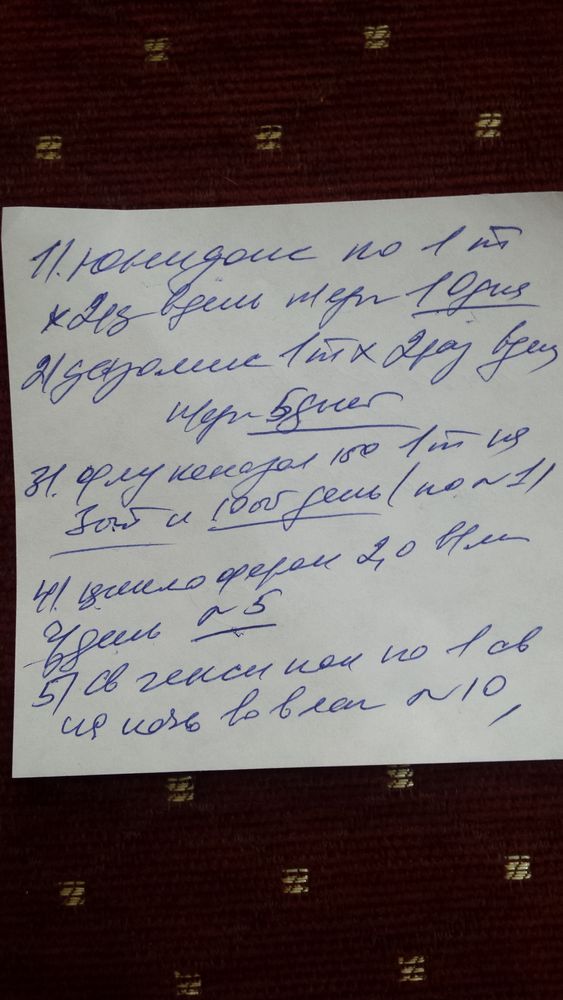 1). Юнидокс по 1 т
х 2рз вдень тчер 10 дня
2) дазолик 1т х 2раз вдень
тчер 5 дней
3). флуконазол 150 1 т на
3ой и 10ой день (по ~1)
4). циклоферон 2,0 в/м
ч/день ~5
5) св гексикон по 1 св
на ночь во влаг ~10,